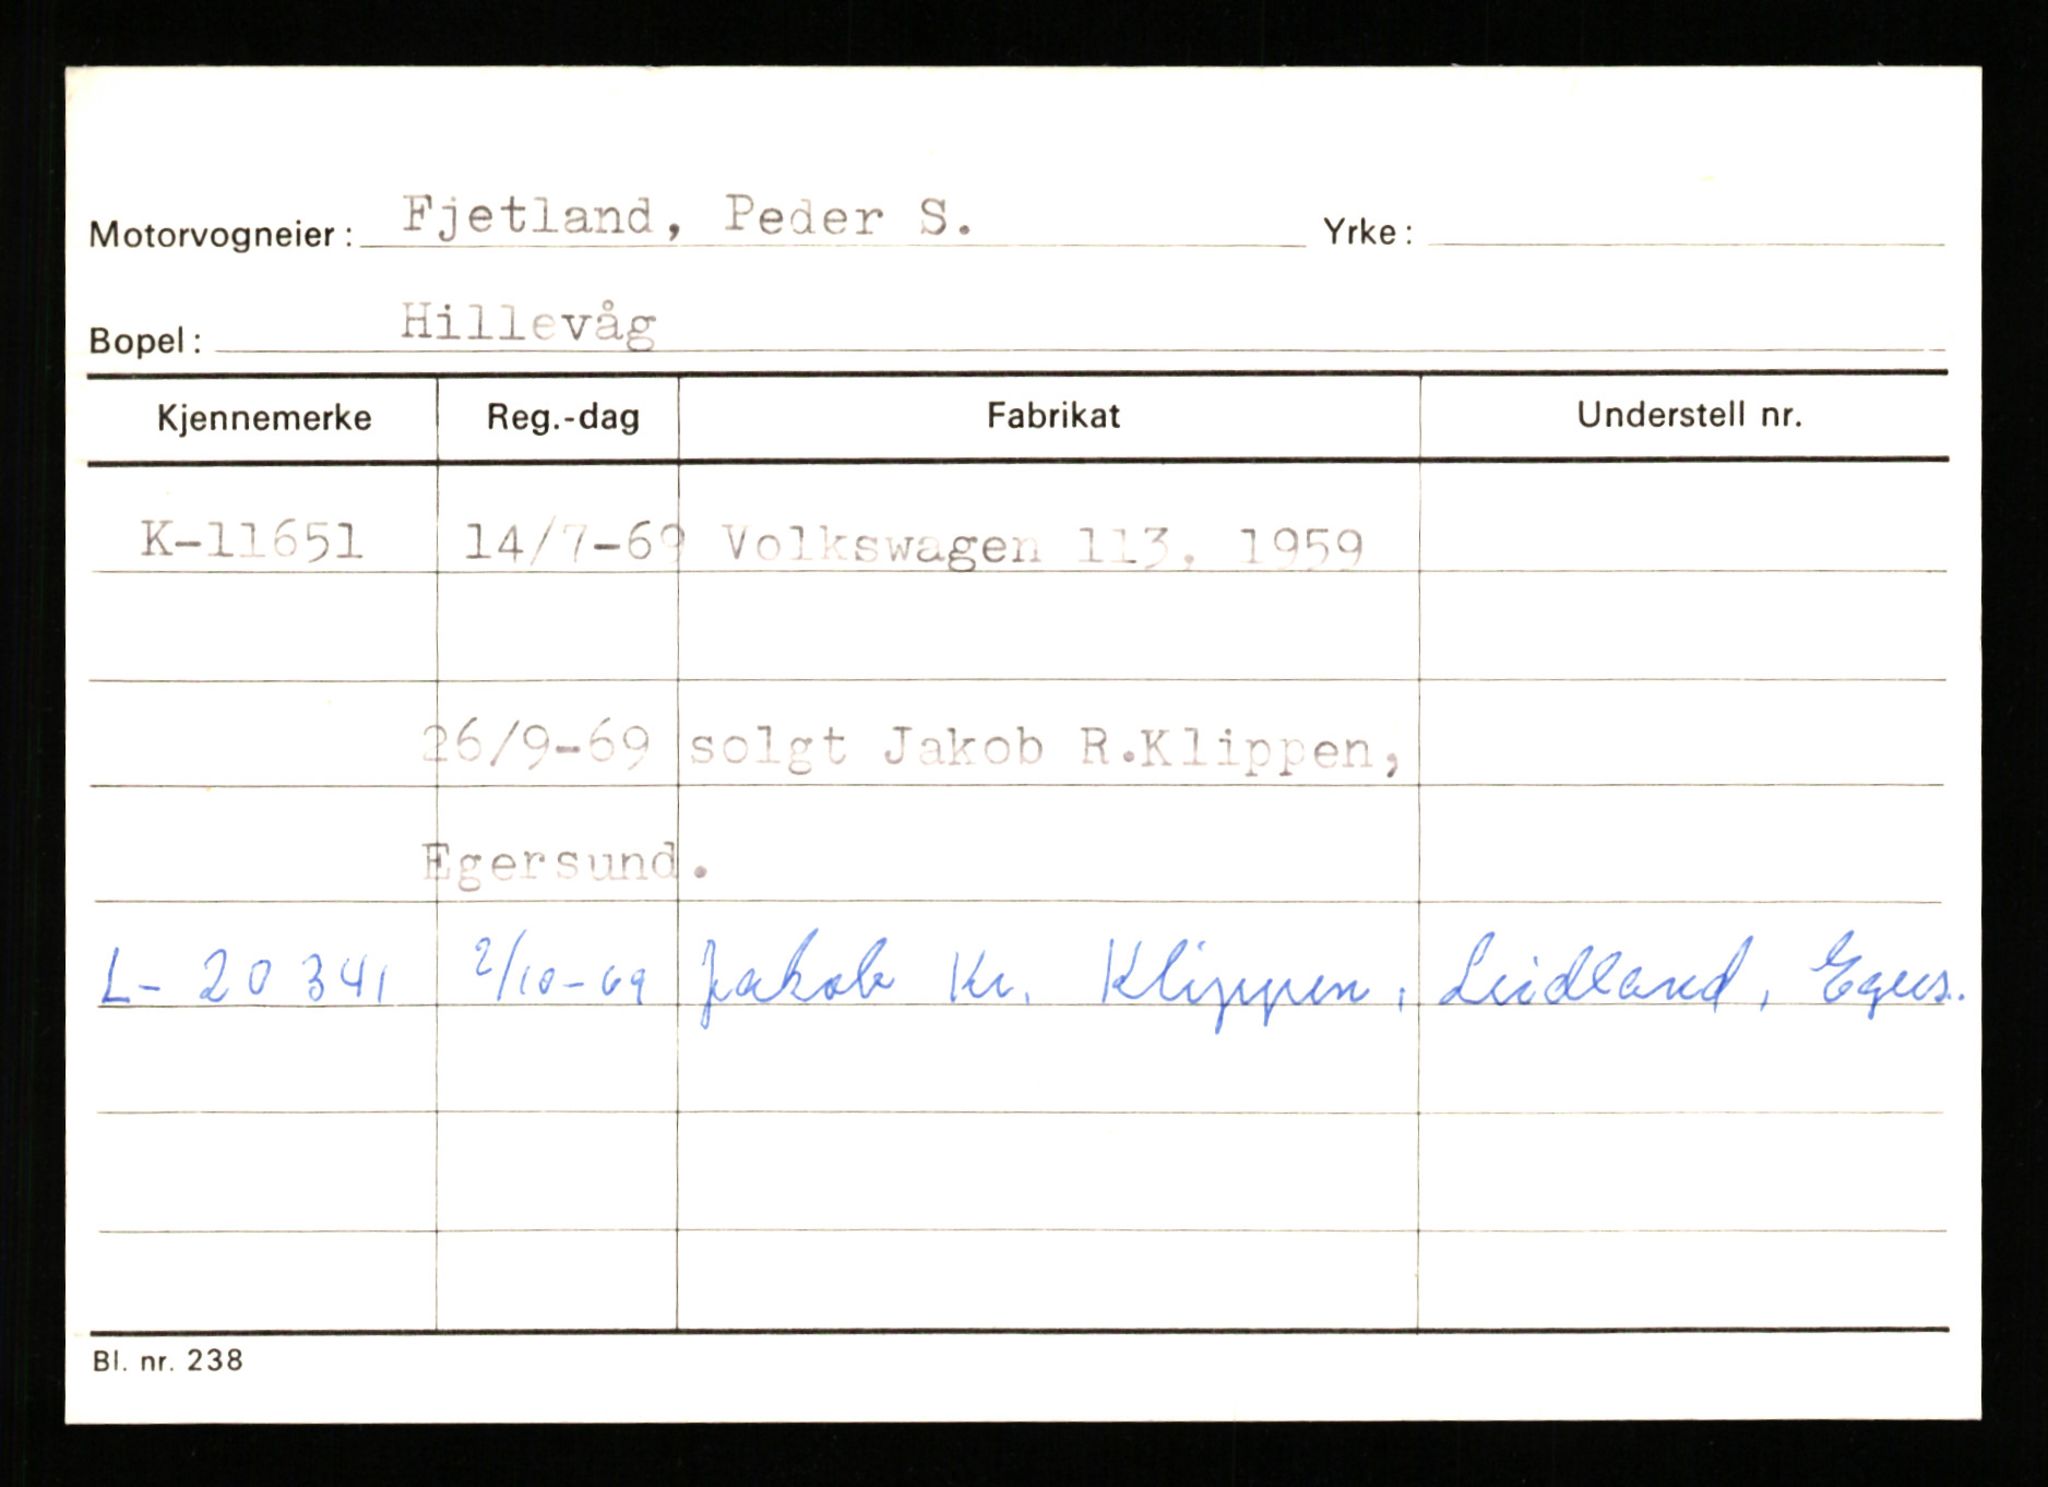 Motorvogneier: Fjetland, Peder S. Yrke:
Bopel: Hillevåg
Kjennemerke Reg.-dag Fabrikat Understell nr.
K-11651 14/7-69 Volkswagen 113, 1959
26/9-69 solgt Jakob R.Klippen,
Egersund.
L- 20341 2/10-69 Jakob Kr. Klippen, Leidland, Egers.
Bl. nr. 238